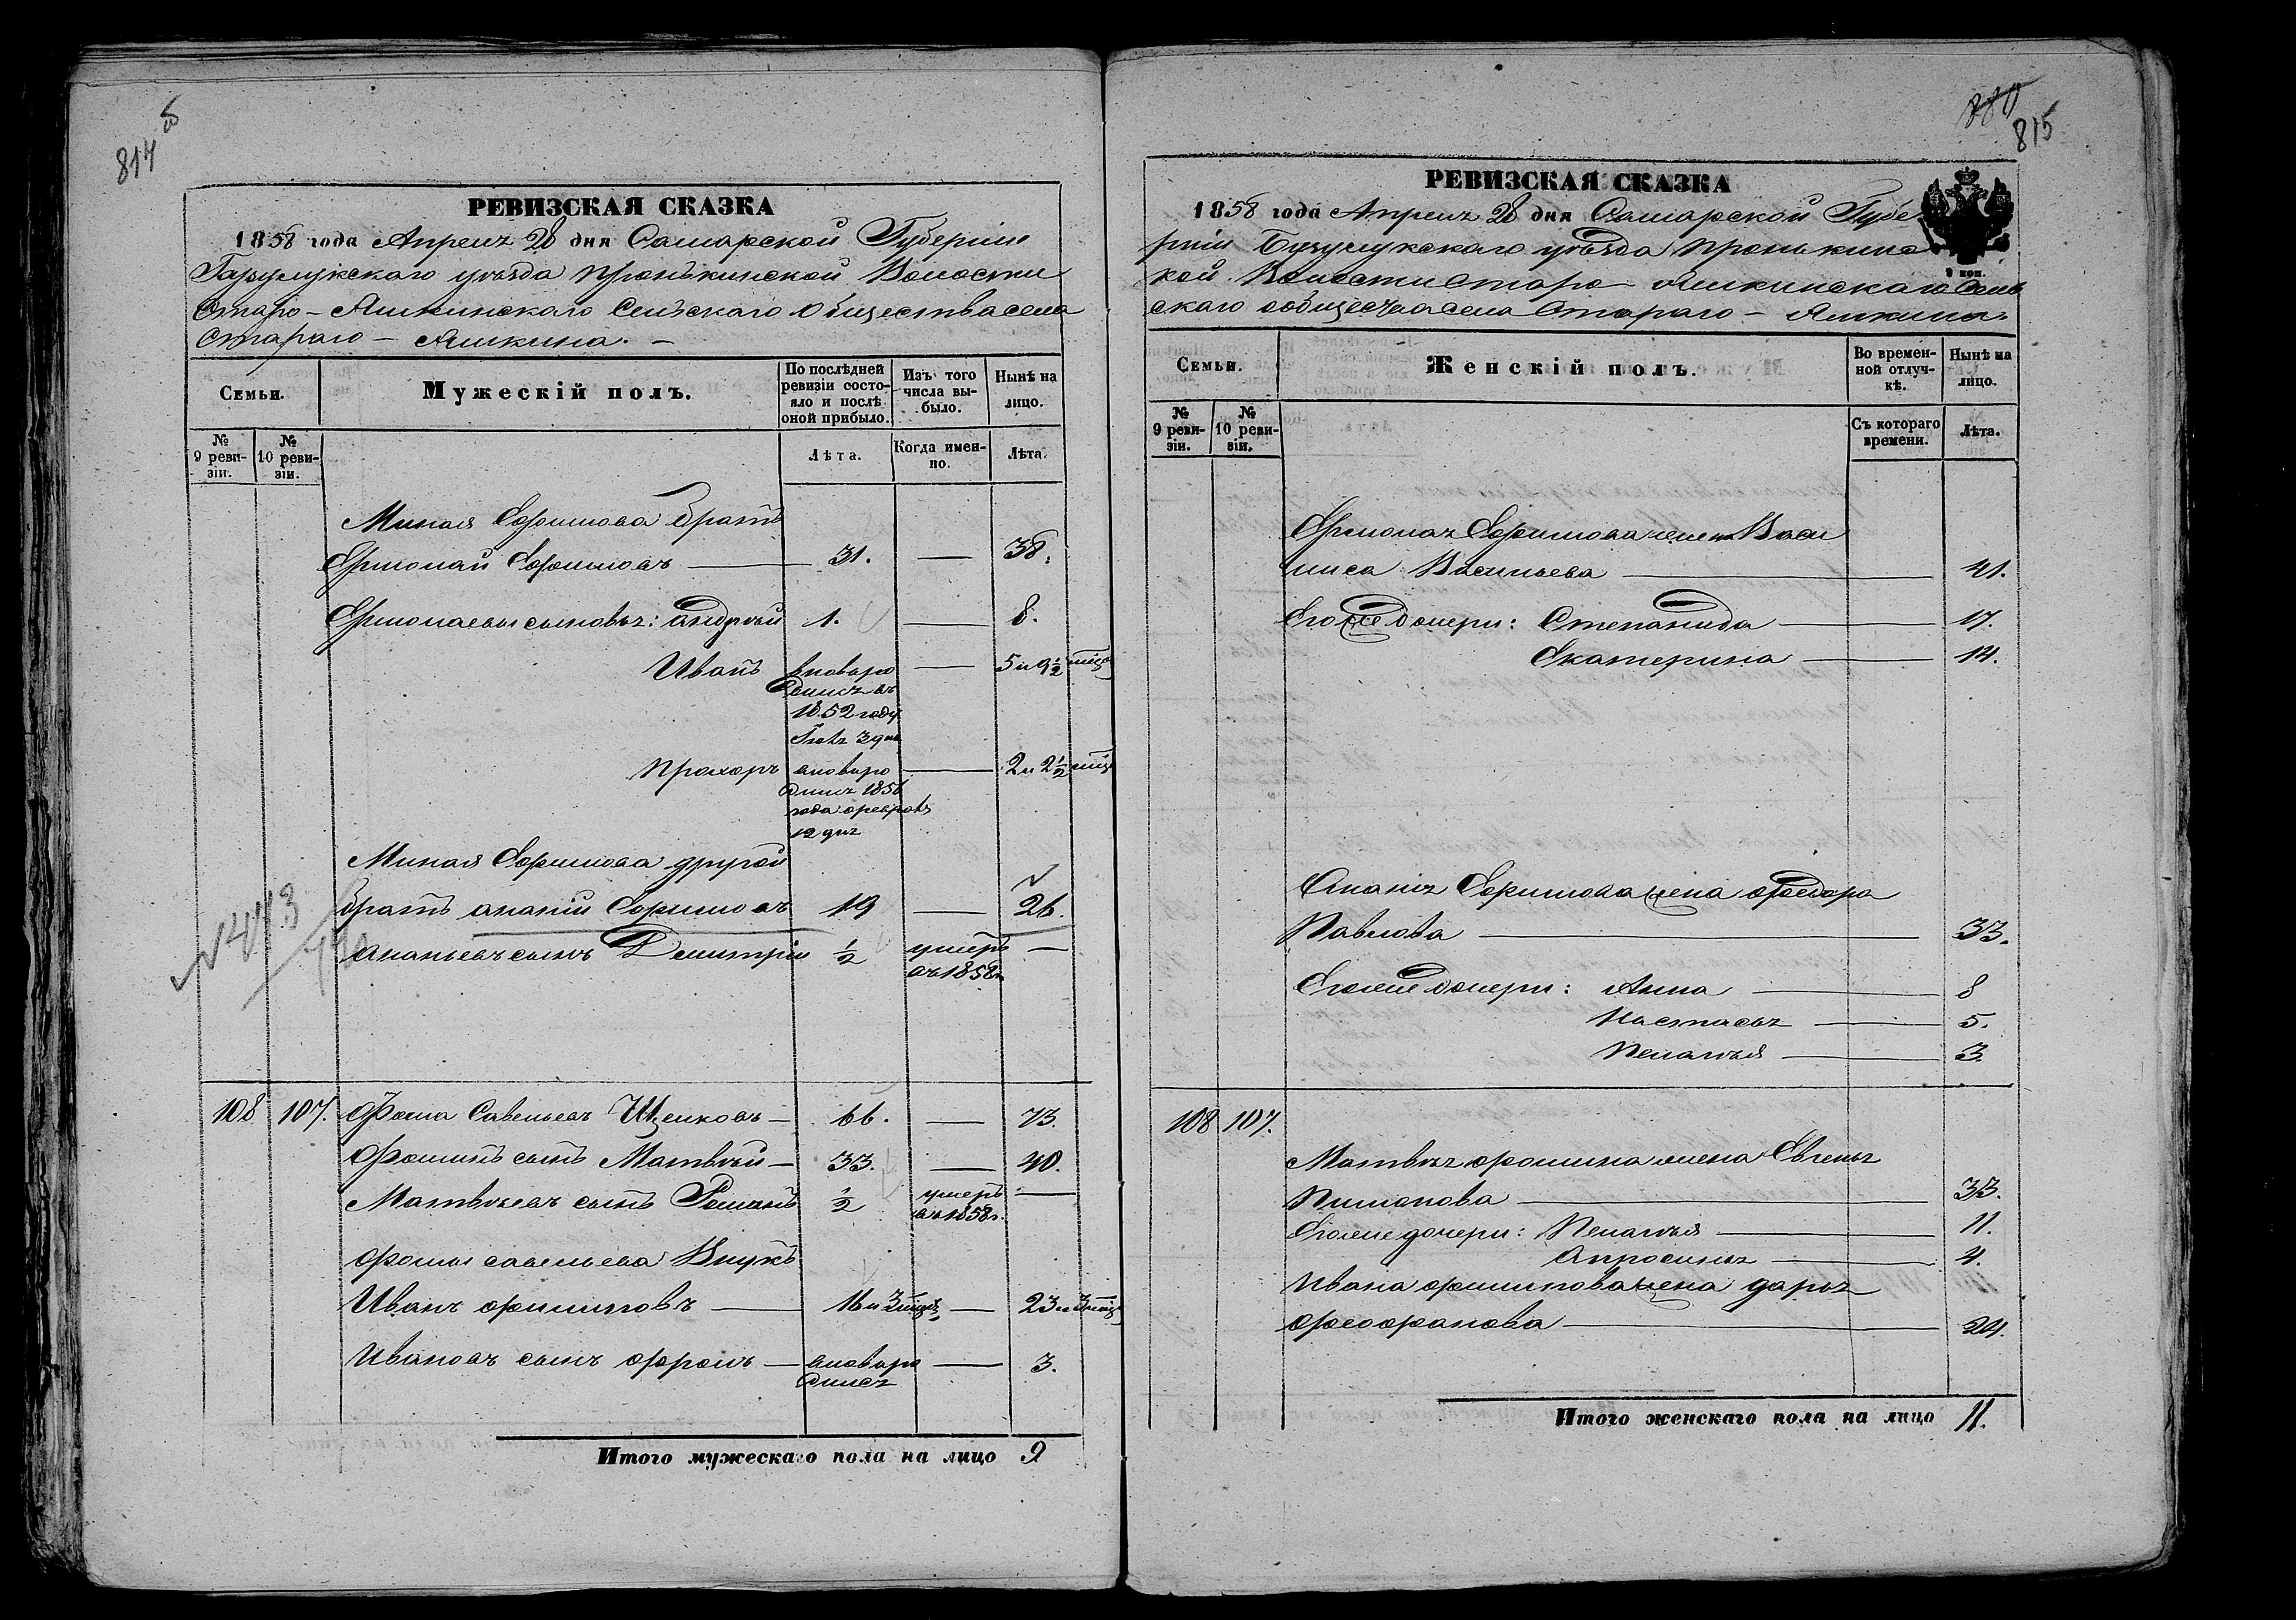 814 об
РЕВИЗСКАЯ СКАЗКА
1858 года Апреля 28 дня Самарской Губерніи
Бузулукскаго уѣзда Пронькинской Волости
Старо-Ашкинскаго Сельскаго Общества села
Стараго-Ашкина.
Семьи.
Мужескій полъ.
По послѣдней ревизіи состояло и послѣ оной прибыло.
Изъ того числа выбыло.
Нынѣ на лицо.
№ 9 ревизіи.
№ 10 ревизіи.
Лѣта.
Когда именно.
Лѣта.
Миная Ефимова братъ
Ермолай Ефимовъ 31. — 38.
Ермолаевы сыновья: Андрѣй 1. — 8.
Иванъ вноворо — 5 и 9½ мѣся
дился въ
1852 году
3 дня
Прохоръ вноворо — 2 и 2½ мѣся
дился 1856
года февраля
12 дня
Миная Ефимова другой
братъ Ананій Ефимовъ 19 — 26.
Ананьевъ сынъ Дмитрій ½ умеръ —
въ 1858 г.
108 107. Фома Савельевъ Щелковъ — 66. — 73.
Фоминъ сынъ Матвѣй — 33. — 40.
Матвѣевъ сынъ Романъ ½ умеръ —
въ 1858 г.
Фомы Савельева Внукъ
Иванъ Филиповъ — 16 и 3 мѣся — 23 и 3 мѣся
Ивановъ сынъ Ефромъ — вноворо — 3.
дился
Итого мужескаго пола на лицо 9
880
815
РЕВИЗСКАЯ СКАЗКА
1858 года Апреля 28 дня Самарской Губе
рніи Бузулукскаго уѣзда Пронькинс
кой Волости Старо-Ашкинскаго Сель
скаго общества села Стараго-Ашкина.
9 коп.
Семьи.
Женскій полъ.
Во временной отлучкѣ.
Нынѣ на лицо.
№ 9 ревизіи.
№ 10 ревизіи.
Съ котораго времени.
Лѣта.
Ермолая Ефимова жена Васи
лиса Васильева — 41.
Егоже дочери: Степанида — 17.
Екатерина — 14.
Ананія Ефимова жена Федора
Павлова — 33.
Егоже дочери: Анна — 8
Настасья — 5.
Пелагѣя — 3.
108 107.
Матвѣя Фомина жена Евгенья
Пиманова — 33.
Егоже дочери: Пелагѣя — 11.
Апросинья — 4.
Ивана Филипова жена Дарья
Феофанова — 24.
Итого женскаго пола на лицо 11.